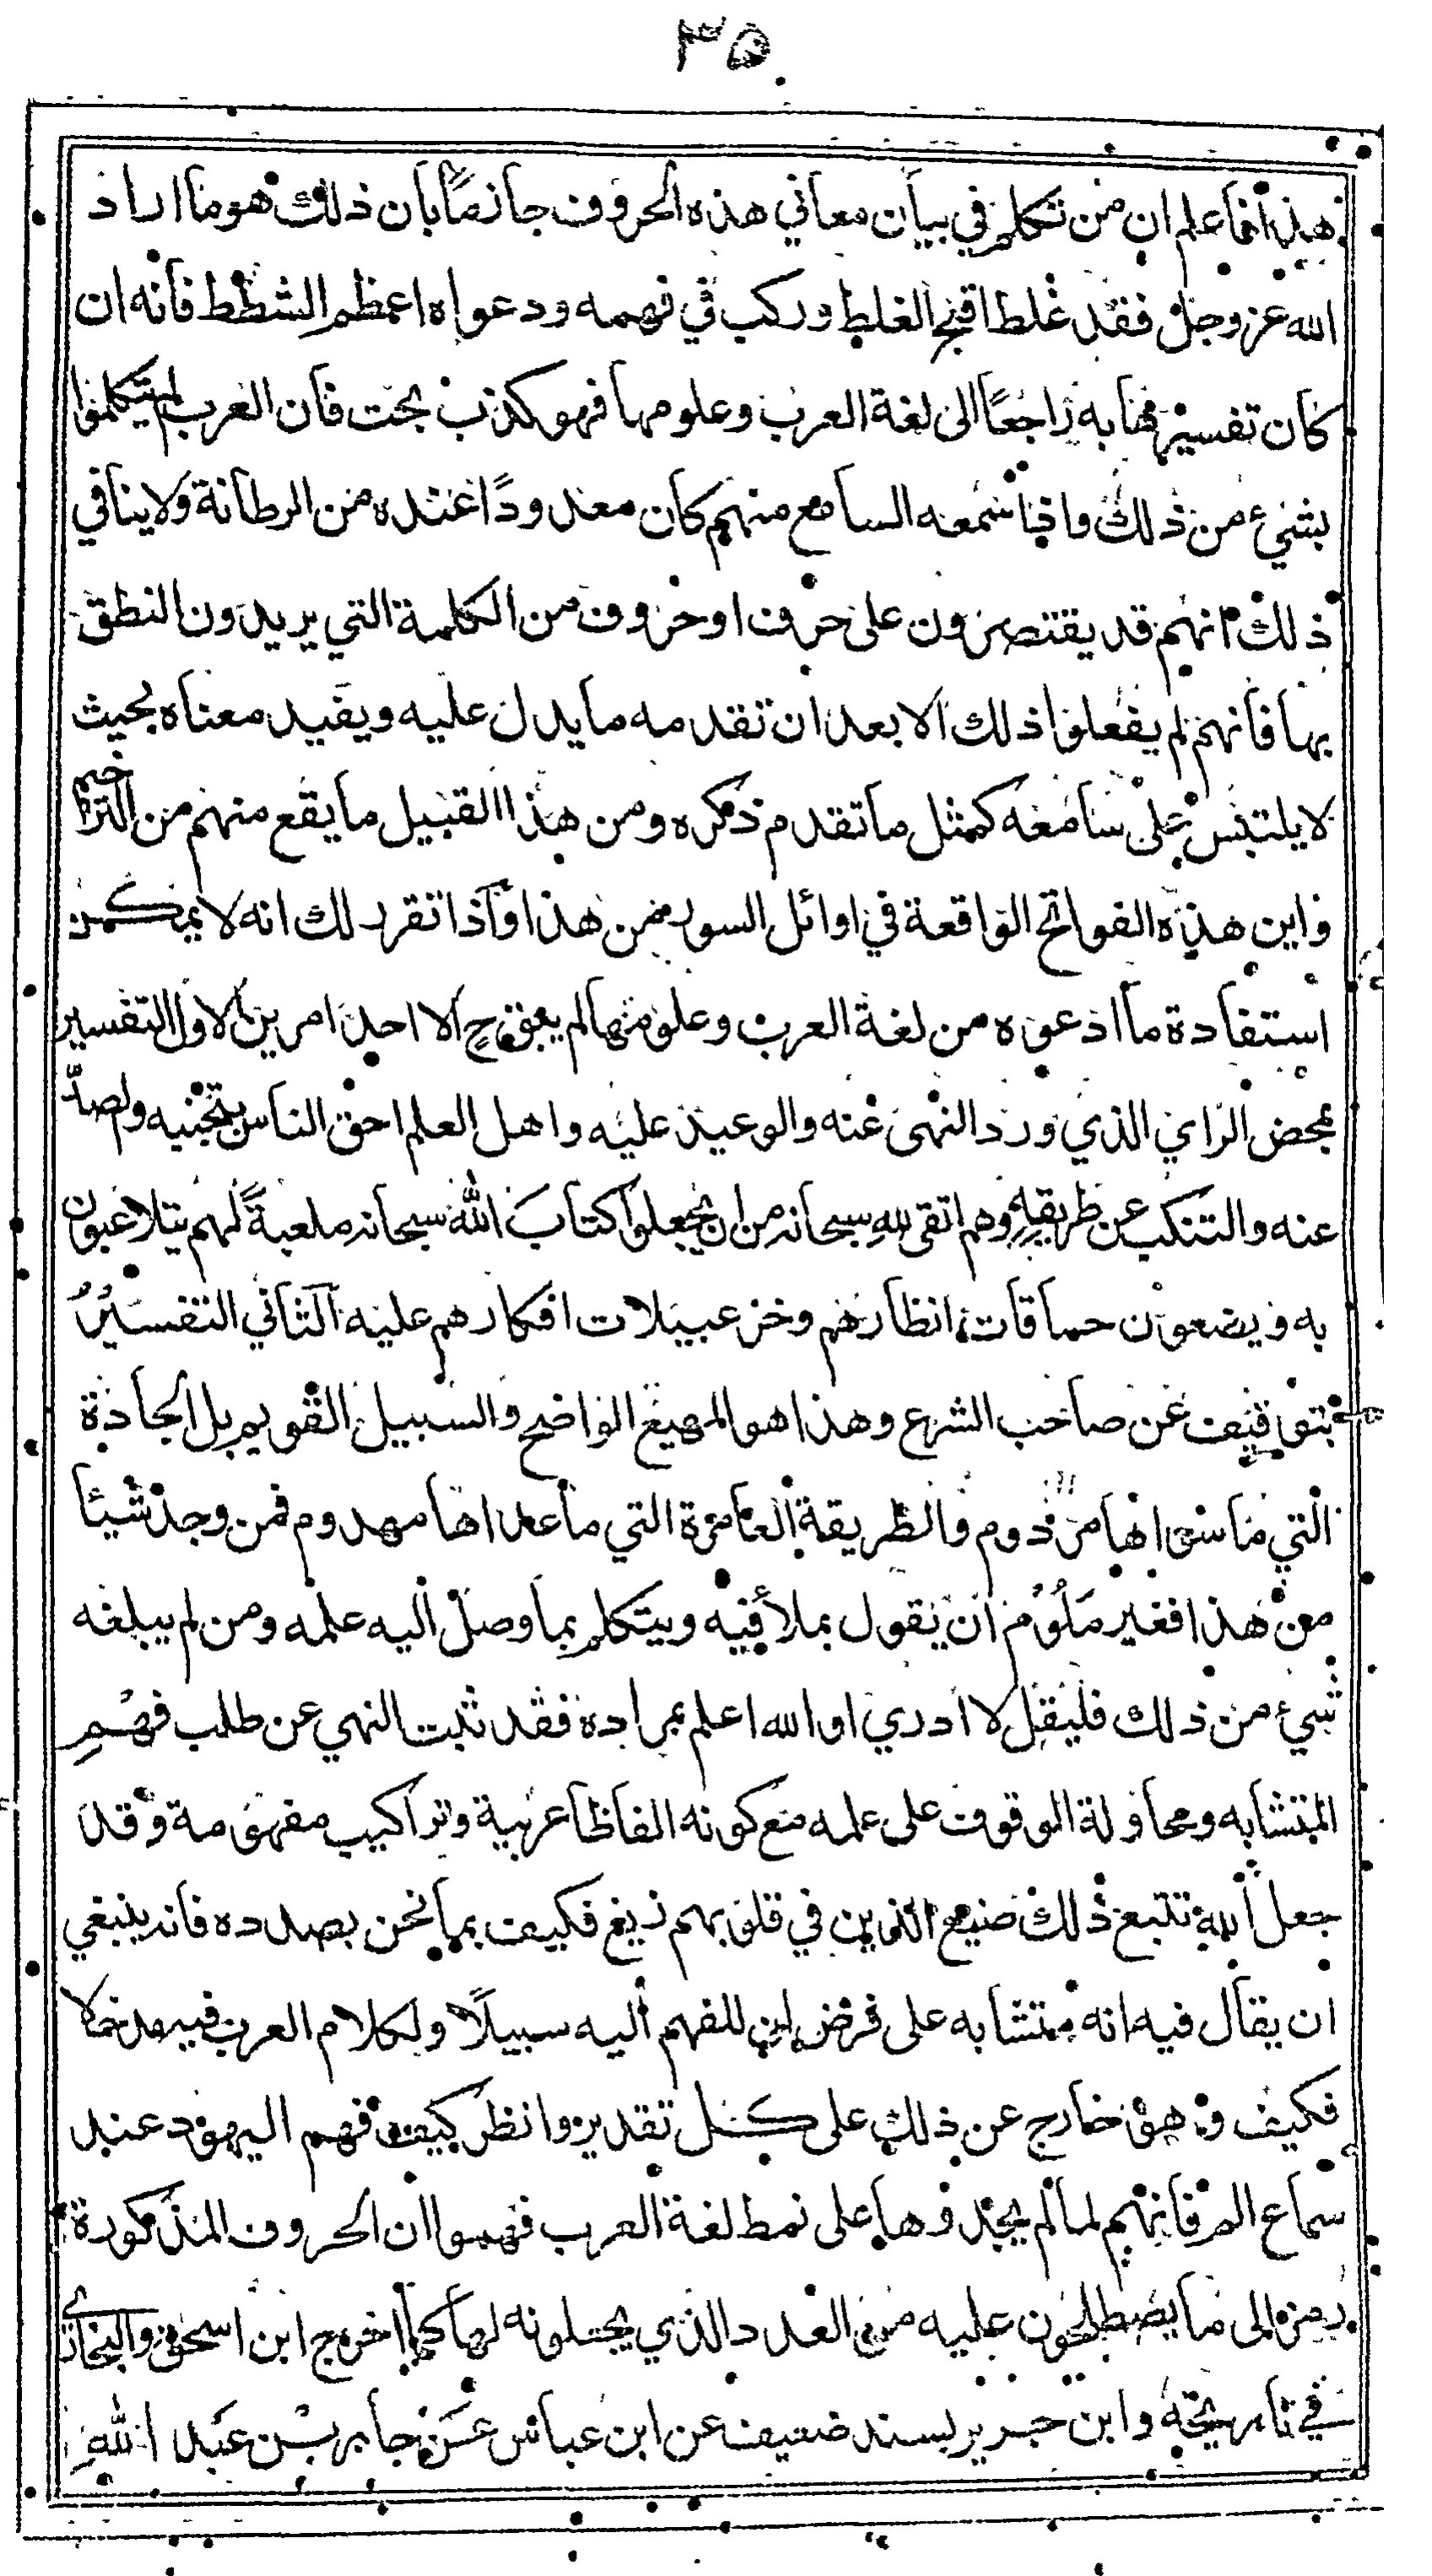 ٣٥
هذا فاعلم ان من تكلم في بيان معاني هذه الحروف جازمًا بان ذلك هو ما اراد
الله عز وجل فقد غلط اقبح الغلط وركب في فهمه ودعواه اعظم الشطط فانه ان
كان تفسيره لها به راجعًا الى لغة العرب وعلومها فهو كذب بحت فان العرب لم يتكلموا
بشيء من ذلك واذا سمعه السامع منهم كان معدودًا عنده من الرطانة ولا ينافي
ذلك انهم قد يقتصرون على حرف او حروف من الكلمة التي يريدون النطق
بها فانهم لم يفعلوا ذلك الا بعد ان تقدمه ما يدل عليه ويفيد معناه بحيث
لا يلتبس على سامعه كمثل ما تقدم ذكره ومن هذا القبيل ما يقع منهم من الترخيم
واين هذه الفواتح الواقعة في اوائل السور من هذا واذا تقرر لك انه لا يمكن
استفادة ما ادعوه من لغة العرب وعلومها لم يبق ح الا احد امرين الاول التفسير
بمحض الراي الذي ورد النهى عنه والوعيد عليه واهل العلم احق الناس بتجنبه والصدّ
عنه والتنكب عن طريقه وهم اتقى لله سبحانه من ان يجعلوا كتاب الله سبحانه ملعبةً لهم يتلاعبون
به ويضعون حماقات انظارهم وخزعبيلات افكارهم عليه الثاني التفسير
بتوقيف عن صاحب الشرع وهذا هو المهيع الواضح والسبيل القويم بل الجادة
التي ما سواها مردوم والطريقة العامرة التي ما عداها مهدوم فمن وجد شيئا
من هذا فغير ملوم ان يقول بملأ فيه ويتكلم بما وصل اليه علمه ومن لم يبلغه
شيء من ذلك فليقل لا ادري او الله اعلم بمراده فقد ثبت النهي عن طلب فهم
المتشابه ومحاولة الوقوف على علمه مع كونه الفاظا عربية وتراكيب مفهومة وقد
جعل الله تتبع ذلك صنيع الذين في قلوبهم زيغ فكيف بما نحن بصدده فانه ينبغي
ان يقال فيه انه متشابه على فرض ان للفهم اليه سبيلًا ولكلام العرب فيه مدخلا
فكيف وهو خارج عن ذلك على كل تقدير وانظر كيف فهم اليهود عند
سماع الم فانهم لما لم يجدوها على نمط لغة العرب فهموا ان الحروف المذكورة
رمزه الى ما يصطلحون عليه من العدد الذي يجعلونه لها كما اخرج ابن اسحق والبخاري
في تاريخه وابن جرير بسند ضعيف عن ابن عباس عن جابر بن عبد الله